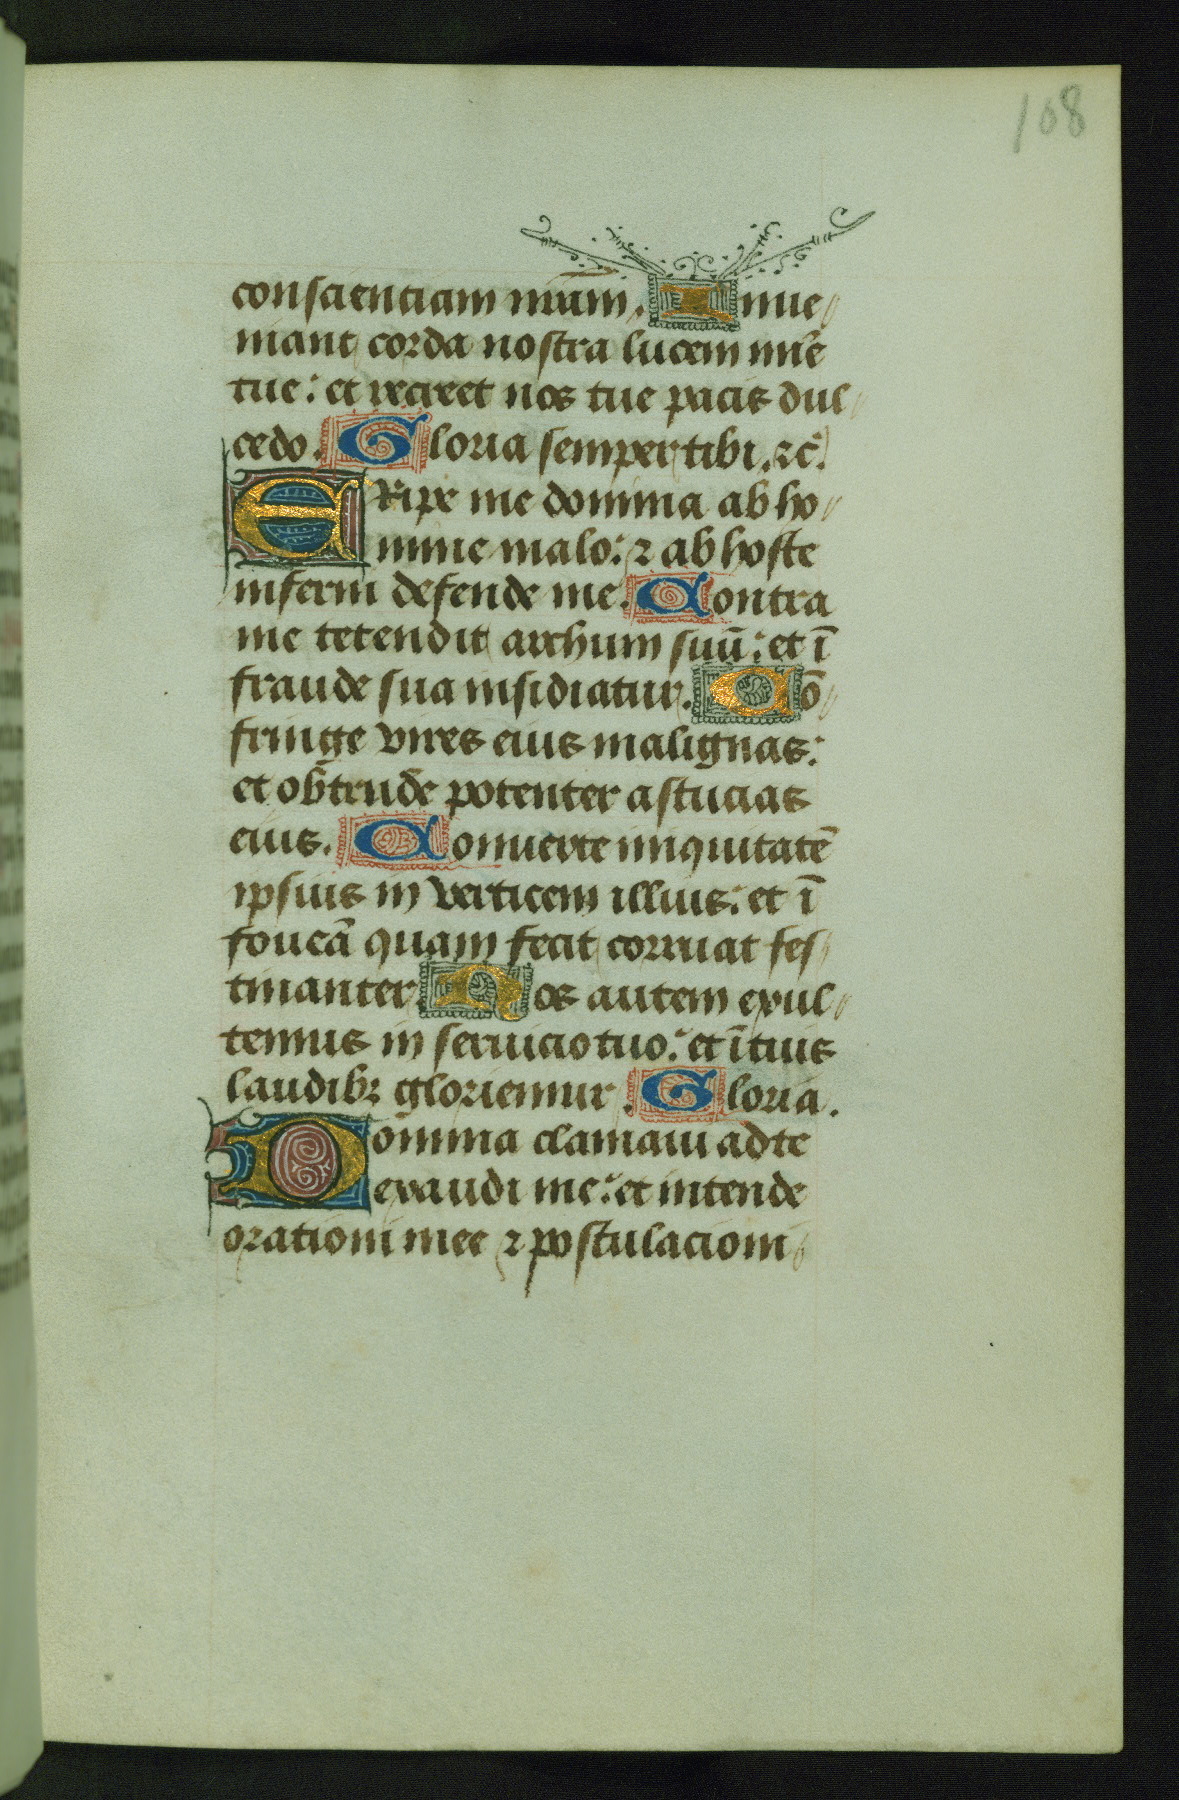 108
consciencjam nrām. Inue
niant corda nostra lucem mīe
tue: et recreet nos tue pacis dul
cedo. Gloria semper tibi. ⁊c̄.
ERipe me domina ab ho
mine malo: ⁊ ab hoste
inferni defende me. Contra
me tetendit archum suū: et ī
fraude sua insidiatur. Cō
fringe vires eius malignas:
et obtrude potenter astucias
eius. Conuerte iniquitatē
ipsius in verticem illius: et ī
foueā quam fecit corruat fes
tinanter. Nos autem exul
temus in seruicio tuo: et ī tuis
laudibꝫ gloriemur. Gloria.
Domina clamaui ad te
exaudi me: et intende
orationi mee ⁊ postulacioni